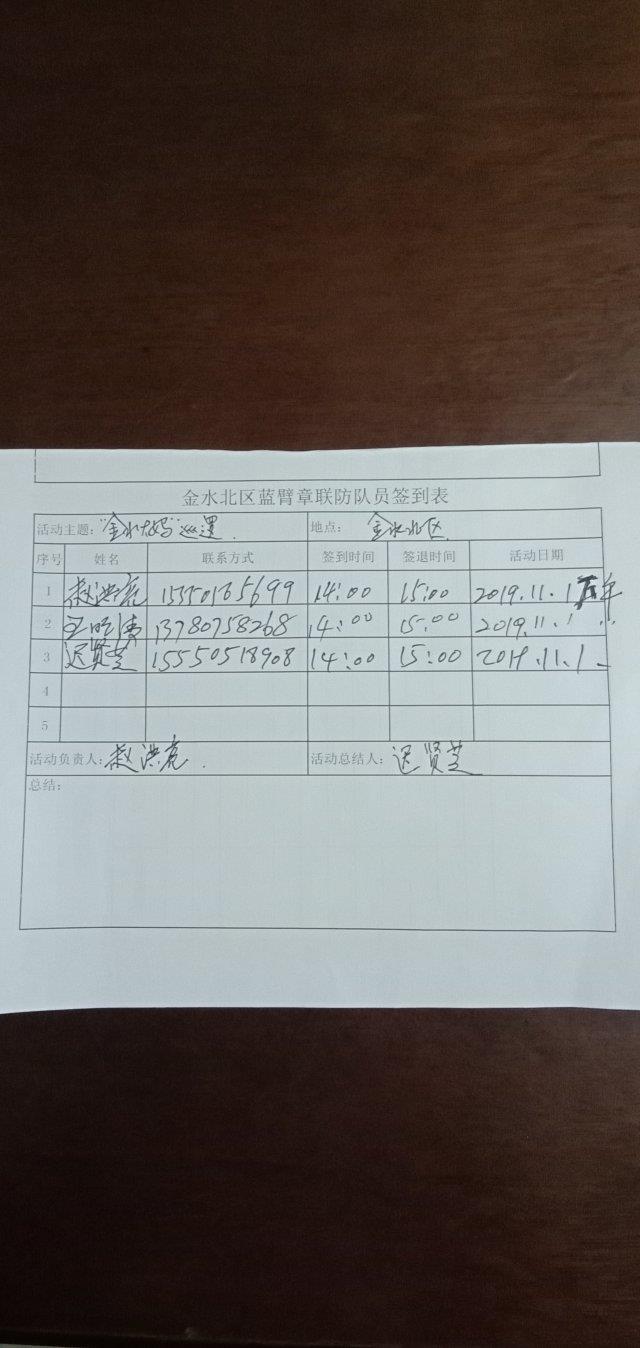 金水北区蓝臂章联防队员签到表
活动主题："金水大妈"巡逻. 地点： 金水北区.
序号 姓名 联系方式 签到时间 签退时间 活动日期
1 赵洪亮 14:00 15:00 2019.11.1 下午
2 13780758268 14:00 15:00 2019.11.1
3 迟贤芝 15550518908 14:00 15:00 2019.11.1
4
5
活动负责人： 赵洪亮. 活动总结人： 迟贤芝
总结：